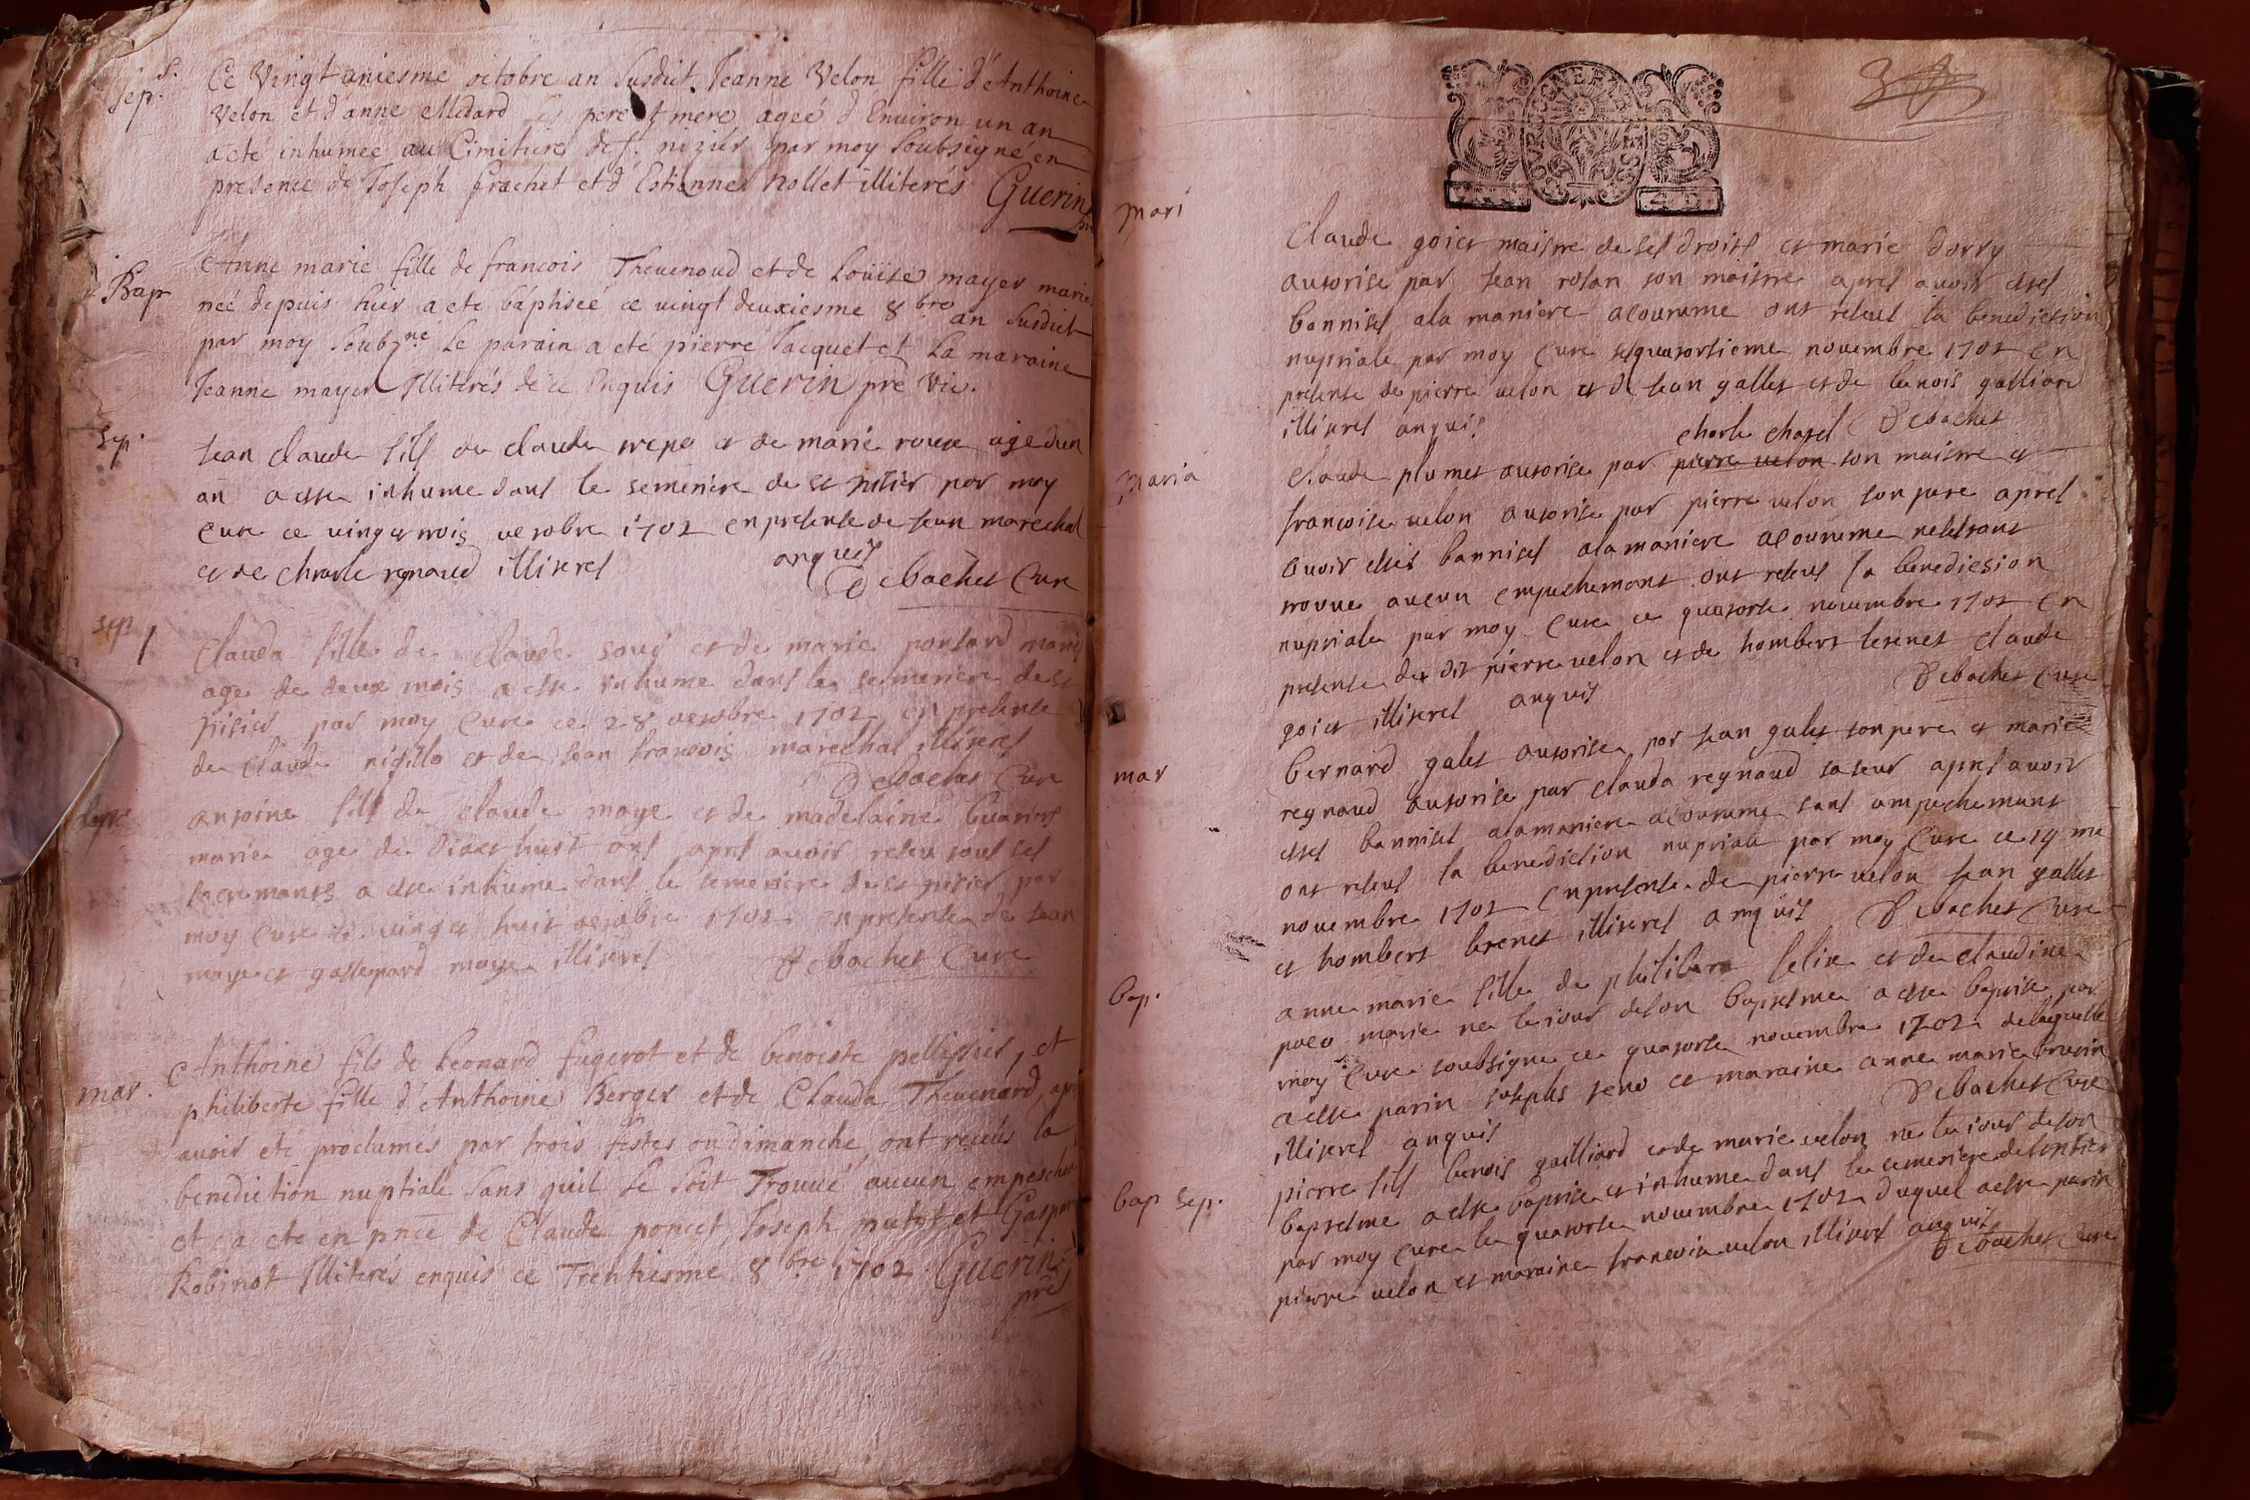 S.
sep.
Ce Vingt uniesme octobre an susdit Jeanne Velon fille d'Anthoine
Velon et d'anne Medard ses pere et mere ageé d'Environ un an
a eté inhumeé au Cimitiere de st. nizier par moy soubsigné en
presence de Joseph frachet et d'Estienne Nollet illiterés Guerin
Bap
Anne marie fille de francois Thevenoud et de Loüise mayer marie
neé depuis hier a eté baptiseé ce vingt deuxiesme 8bre an susdit
par moy soubzné le parain a eté pierre Jacquet et La maraine
Jeanne mayer Illiterés de ce Enquis Guerin pre Vic.
sep.
Jean claude fils de claude et de marie roux age dun
an a este inhume dans le semetiere de st nisier par moy
cure ce vingt et trois octobre 1702 en presente de Jean marechal
et de charle regnaud illiteres anquis
Debachet Cure
sep
Clauda fille de claude et de marie ponsard marie
age de deux mois a este inhume dans le semetiere de st
nisier par moy Cure ce 28 octobre 1702 en presente
de Claude et de Jean francois marechal illiteres
Debachet Cure
antoine fils de claude moye et de madelaine
marie age de ans apres avoir reseu tous ses
sacremants a este inhume dans le semetiere de st nisier par
moy Cure ce vingt et huit octobre 1702 en presente de Jean
moye et moye illiteres Debachet Cure
mar.
Anthoine fils de Leonard fugerot et de benoiste pellissier, et
philiberte fille d'Anthoine Berger et de Clauda Thevenard, apr
avoir eté proclamés par trois festes ou dimanche, ont receüs la
benediction nuptiale sans quil se soit Trouvé aucun empesche
et a eté en pnce de Claude poncet, Joseph et Gaspar
Robinot Illiterés enquis ce Trentiesme 8bre 1702 Guerin
pre
GENERALITE
mari
Claude goiet maistre de ses droits et marie dorry
autorise par Jean rolan son maistre apres avoir estes
bannises a la maniere acoutume ont reseus la benediction
nuptiale par moy Cure quatortieme novembre 1702 en
presente de pierre velon et de Jean gallet et de benois galliard
illiteres anquis Debachet
maria
charle chatel
Claude plumet autorise par pierre velon son maistre et
francoise velon autorise par pierre velon son pere apres
avoir estes bannises a la maniere acoutume ne sestant
trouve aucun empeschemant ont reseus la benediction
nuptiale par moy Cure ce quatorse novembre 1702 en
presente du dit pierre velon et de hombert claude
goiet illiteres anquis Debachet Cure
mar
bernard galet autorise par Jean galet son pere et marie
regnaud autorise par clauda regnaud sa seur apres avoir
estes bannises a la maniere acoutume sans ampechemant
ont reseus la benediction nuptiale par moy Cure ce 14 me
novembre 1702 en presente de pierre velon Jean gallet
et hombert illiteres anquis Debachet Cure
bap.
anne marie fille de philibert felix et de claudine
marie ne le jour de son baptesme a este baptise par
moy Cure soubsigne ce quatorse novembre 1702 de laquelle
a este parin et maraine anne marie
illiteres anquis Debachet Cure
bap sep.
pierre fils benois gailliard et de marie velon ne le jour de son
baptesme a este baptise et inhume dans le semetiere de
par moy cure le quatorse novembre 1702 duquel a este parin
pierre velon et maraine francoise velon illiteres anquis
Debachet Cure